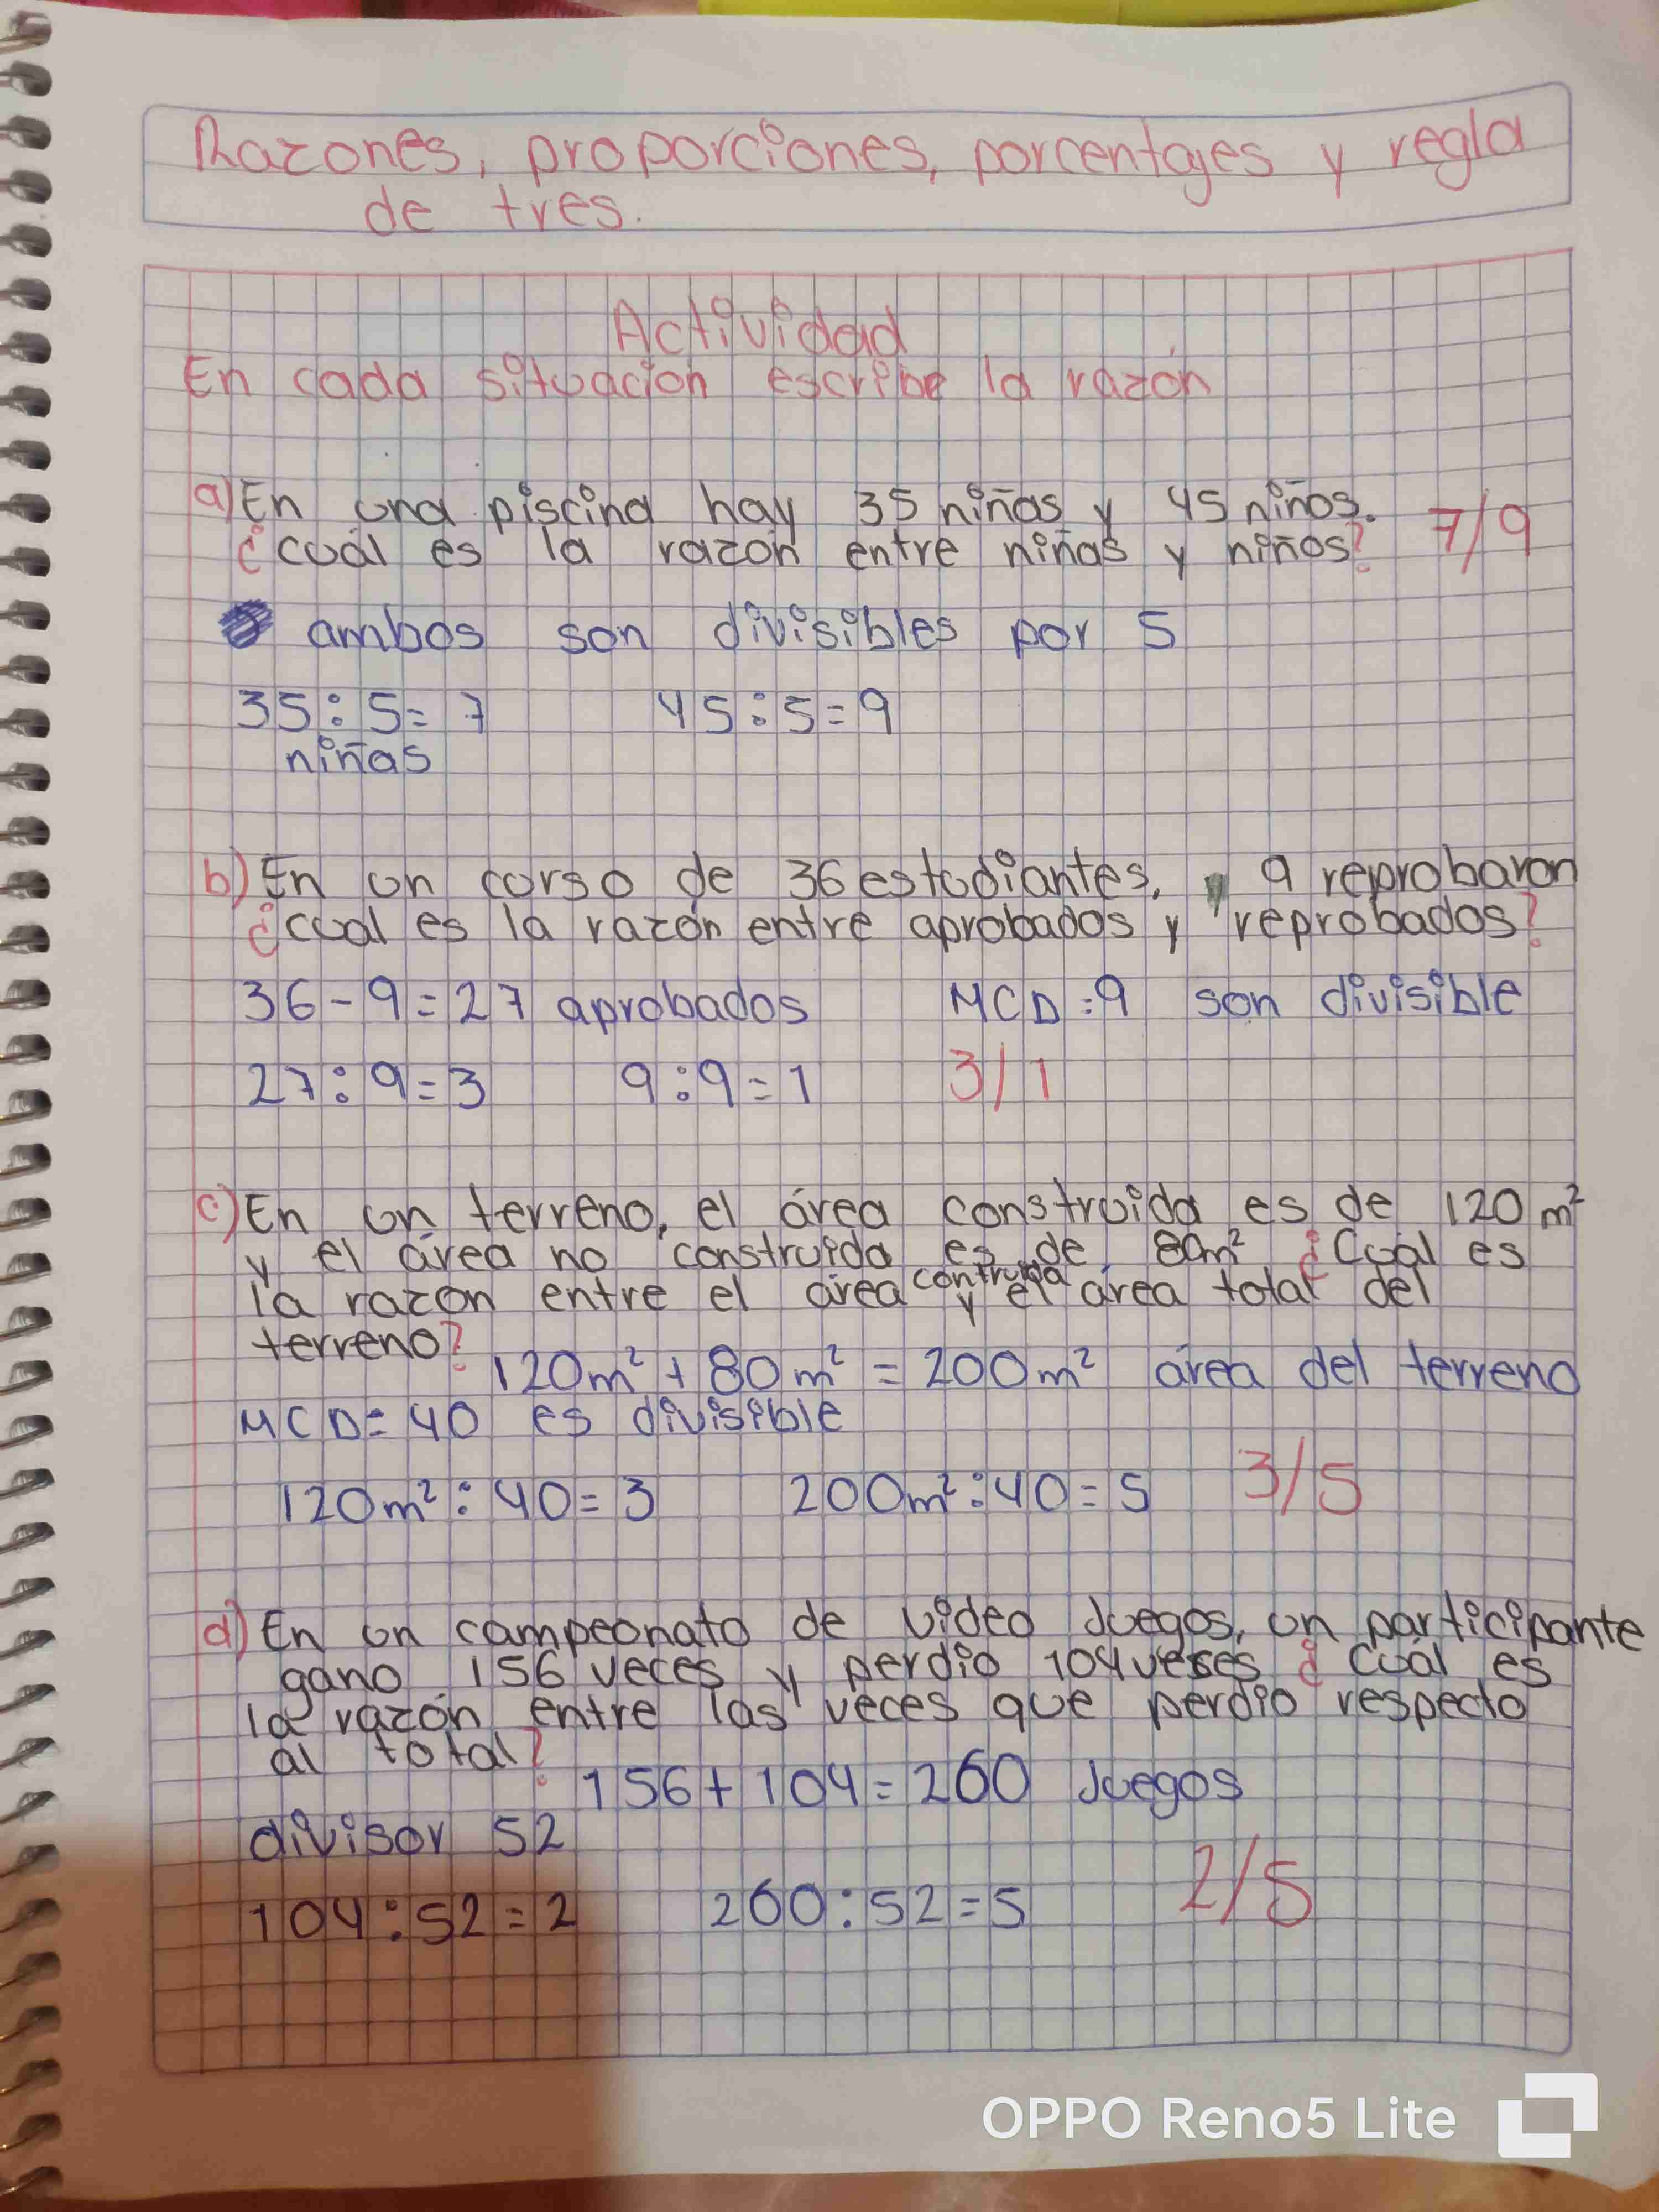 Razones, proporciones, porcentajes y regla
de tres.
Actividad
En cada situación escribe la razón
a) En una piscina hay 35 niñas y 45 niños.
¿cuál es la razón entre niñas y niños? 7/9
ambos son divisibles por 5
35:5=7 45:5=9
niñas
b) En un curso de 36 estudiantes, 9 reprobaron
¿cual es la razón entre aprobados y reprobados?
36-9=27 aprobados MCD:9 son divisible
27:9=3 9:9=1 3/1
c) En un terreno, el área construida es de 120 m²
y el área no construida es de 80m² ¿Cuál es
la razon entre el área contruida y el área total del
terreno?
120m² + 80m² = 200m² área del terreno
MCD=40 es divisible
120m²:40=3 200m²:40=5 3/5
d) En un campeonato de video Juegos, un participante
gano 156 veces y perdio 104 veses ¿Cuál es
la razón entre las veces que perdio respecto
al total?
156+104=260 Juegos
divisor 52
104:52=2 260:52=5 2/5
OPPO Reno5 Lite